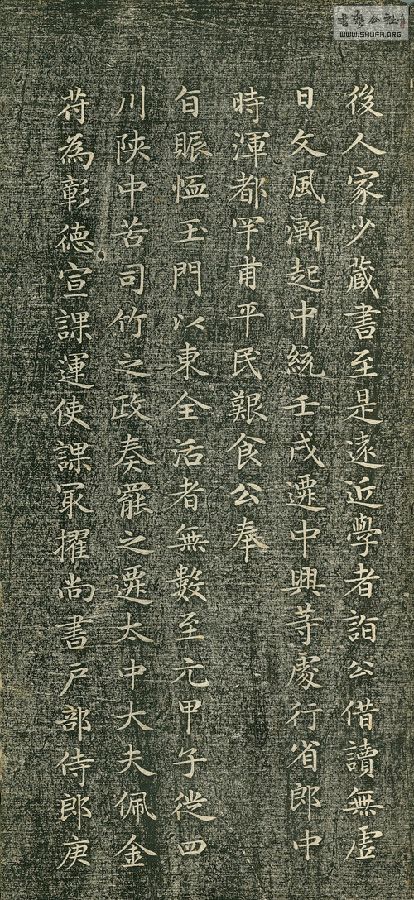 後人家少藏書至是遠近學者詣公借讀無虛
日文風漸起中統壬戌遷中興等處行省郎中
時渾都罕甫平民艱食公奉
旨賑恤玉門以東全活者無數至元甲子從四
川陝中苦司竹之政奏罷之遷太中大夫佩金
符為彰德宣課運使課最擢尚書戶部侍郎庚
書藝公社
WWW.SHUFA.ORG